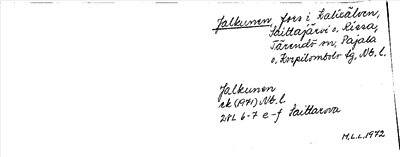 Jalkunen, fors i Kalixälven,
Saittajärvi o. Rissa,
Tärendö sn, Pajala
o. Korpilombolo tg, Nb. l.
Jalkunen
ek (1971) Nb. l
28L 6-7 e-f Saittarova
M.L.L. 1972